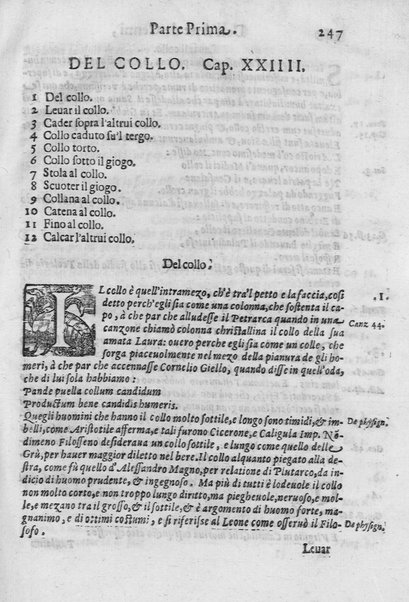 Parte Prima.
247
DEL COLLO. Cap. XXIIII.
1 Del collo.
2 Leuar il collo.
3 Cader sopra l'altrui collo.
4 Collo caduto su'l tergo.
5 Collo torto.
6 Collo sotto il giogo.
7 Stola al collo.
8 Scuoter il giogo.
9 Collana al collo.
10 Catena al collo.
11 Fino al collo.
12 Calcar l'altrui collo.
Del collo.
IL collo è quell'intramezo, ch'è tra'l petto e la faccia, così
detto perch'egli sia come una colonna, che sostenta il ca-
po, à che par che alludesse il Petrarca quando in una
canzone chiamò colonna christallina il collo della sua
amata Laura: ouero perche egli sia come un colle, che
sorga piaceuolmente nel mezo della pianura de gli ho-
meri, à che par che accennasse Cornelio Giello, quando disse in quell'oda,
che di lui sola habbiamo:
Pande puella collum candidum
Productum bene candidis humeris.
Quegli huomini che hanno il collo molto sottile, e longo sono timidi, & im-
belli, come Aristotile afferma, e tal furono Cicerone, e Caligula Imp. No-
dimeno Filosseno desideraua un collo sottile, e lungo come quello delle
Grù, per hauer maggior diletto nel bere. Il collo alquanto piegato alla de-
stra, come fù quello d'Alessandro Magno, per relatione di Plutarco, da in-
dicio di huomo prudente, & ingegnoso. Ma più di tutti è lodeuole il collo
non molto corto, e non troppo lungo diritto, ma pieghevole, neruoso, e mol-
le, e mezano tra il grosso, & il sottile, & è argomento di huomo forte, ma-
gnanimo, e di ottimi costumi, e si riferisse al Leone come osseruò il Filo-
sofo.
1.
Canz 44.
De physign.
De physign.
Leuar